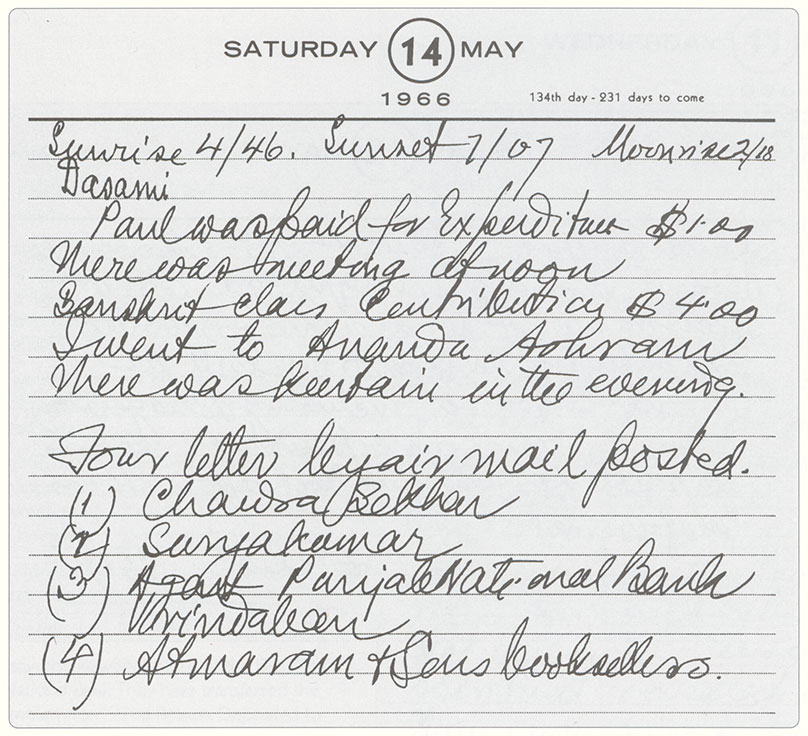 SATURDAY 14 MAY
1966 134th day - 231 days to come
Sunrise 4/46. Sunset 7/07 Moonrise 2/18
Dasami
Paul was paid for Expenditure $1.00
There was meeting at noon
Sanskrit class Contribution $4.00
I went to Ananda Ashram
There was keertain in the evening.
Four letter by air mail posted.
(1) Chandra Sekhar
(2) Suryakumar
(3) Agent Punjab National Bank
Vrindaban
(4) Atmaram & Sons booksellers.